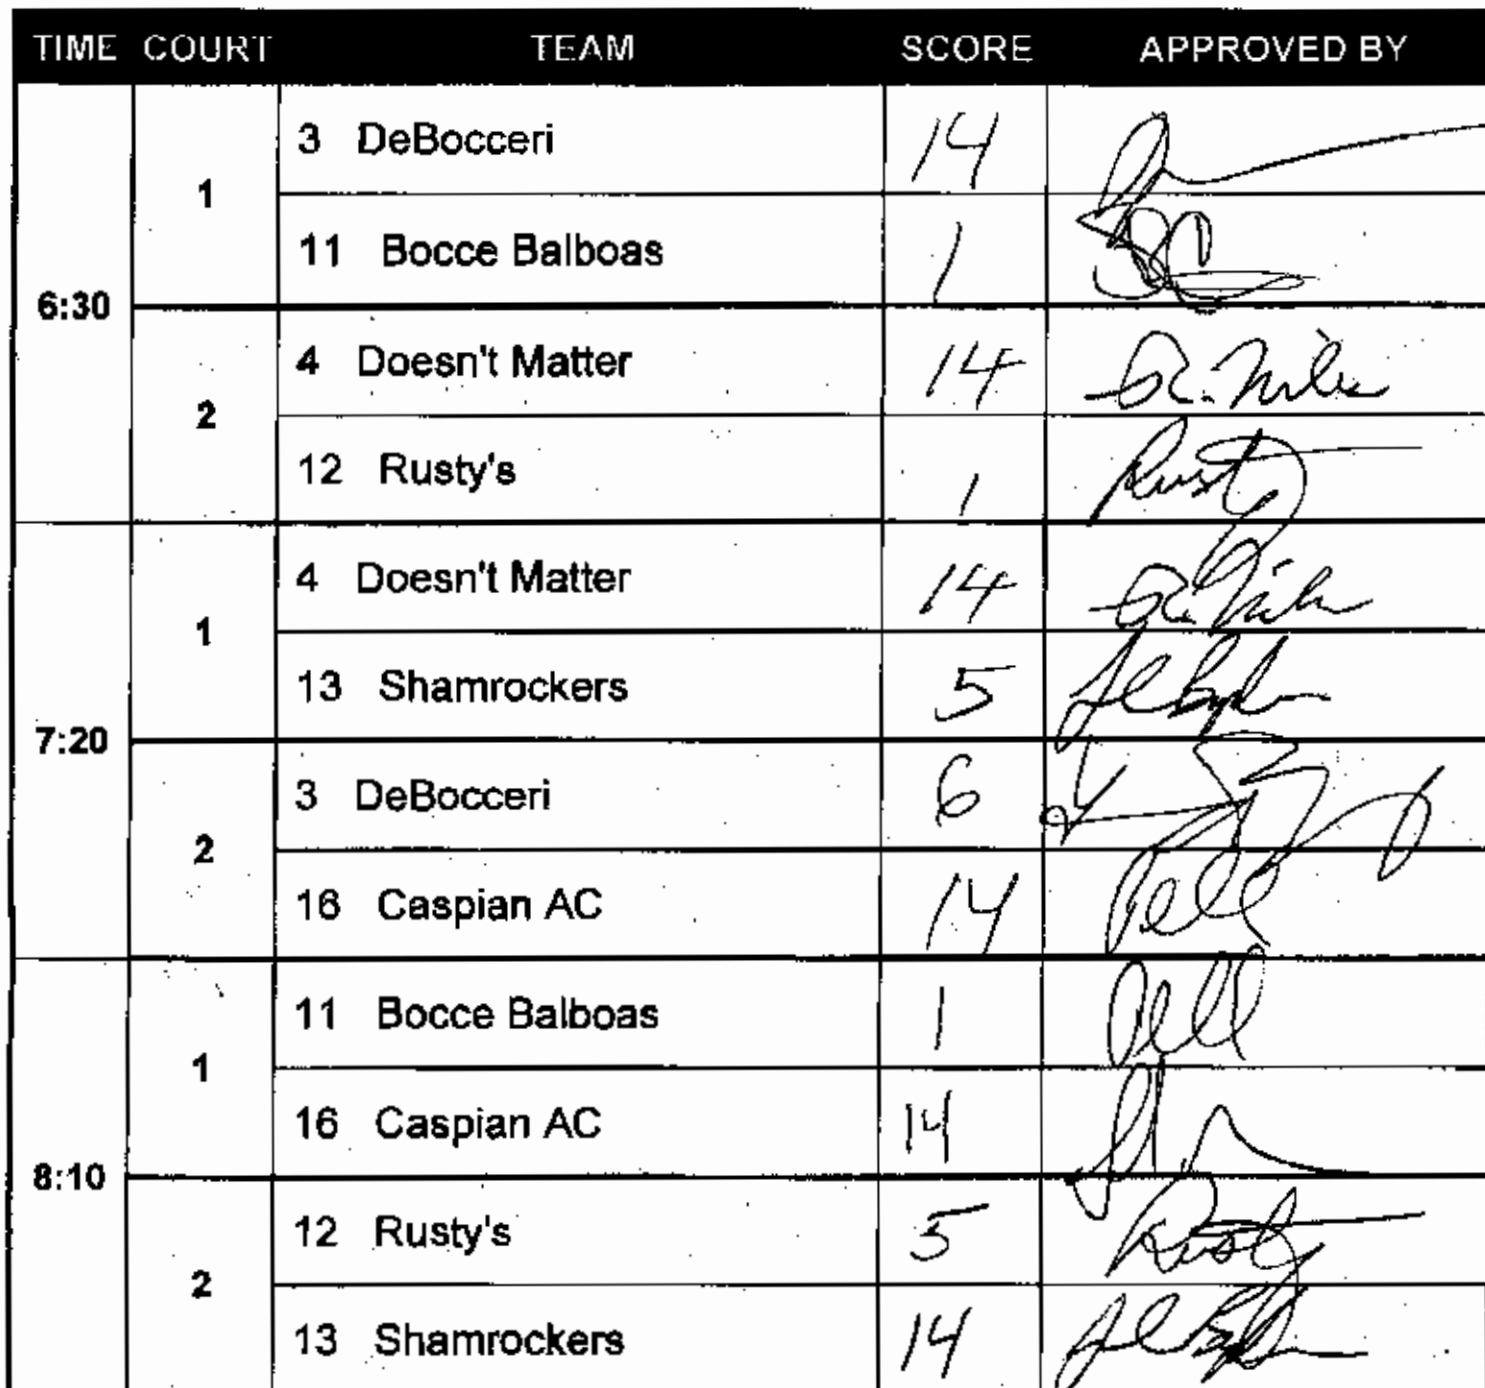 TIME COURT TEAM SCORE APPROVED BY
6:30
1
3 DeBocceri 14
11 Bocce Balboas 1
2
4 Doesn't Matter 14
12 Rusty's 1 Rusty
7:20
1
4 Doesn't Matter 14
13 Shamrockers 5
2
3 DeBocceri 6
16 Caspian AC 14
8:10
1
11 Bocce Balboas 1
16 Caspian AC 14
2
12 Rusty's 5 Rusty
13 Shamrockers 14